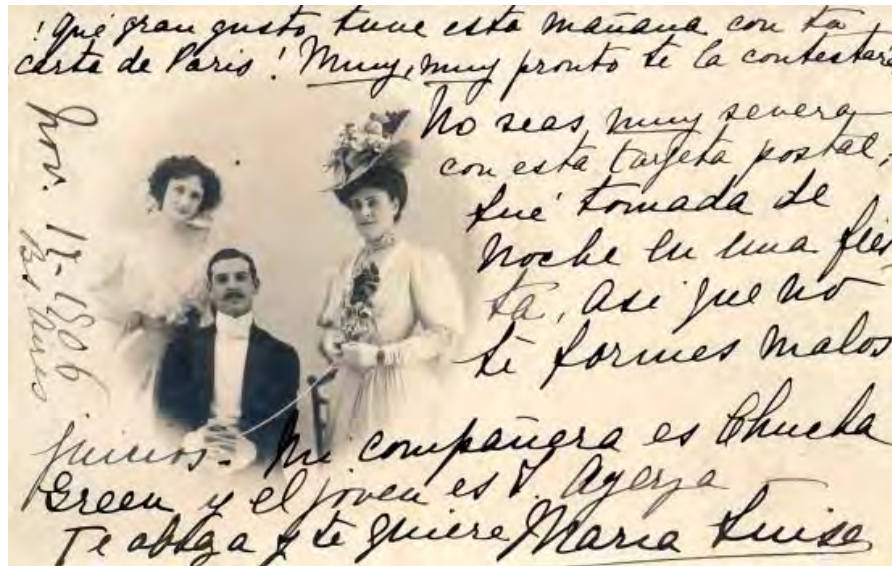 ¡Qué gran gusto tuve esta mañana con tu
carta de Paris! Muy, muy pronto te la contestaré
No seas muy severa
con esta tarjeta postal,
fué tomada de
noche en una fies
ta, asi que no
te formes malos
juicios. Mi compañera es Chucha
Green y el joven es Ayerza
Te abraza y te quiere Maria Luisa
Nov. 12-1906
Bs. Aires